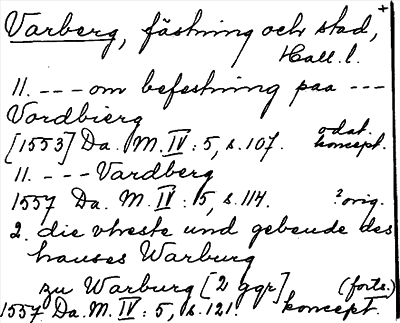 +
Varberg, fästning och stad,
Hall. l.
11. - - - om befestning paa - - -
Vardbierg
odat.
[1553] Da. M. IV: 5, s. 107. koncept.
11. - - - Vardberg
1557 Da. M. IV: 5, s. 114. ?orig.
2. die vheste und gebeude des
hauses Warburg
zu Warburg [2 ggr] (forts.)
1557 Da. M. IV: 5, s. 121. koncept.